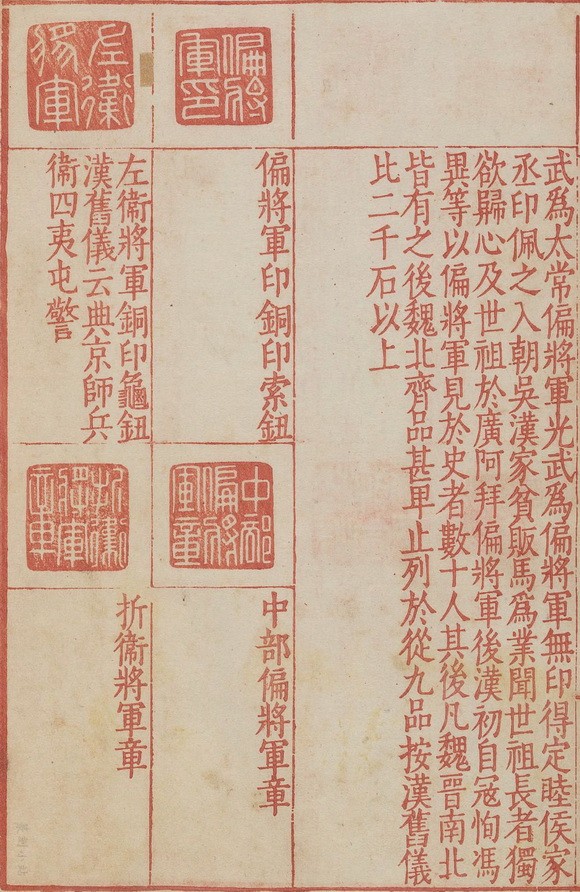 武爲太常偏將軍光武爲偏將軍無印得定睦侯家
丞印佩之入朝吳漢家貧販馬爲業聞世祖長者獨
欲歸心及世祖於廣阿拜偏將軍後漢初自冦恂馮
異等以偏將軍見於史者數十人其後凡魏晉南北
皆有之後魏北齊品甚卑止列於從九品按漢舊儀
比二千石以上
偏將軍印
偏將軍印銅印索鈕
中部偏將軍章
中部偏將軍章
左衞將軍
左衞將軍銅印龜鈕
漢舊儀云典京師兵
衞四夷屯警
折衝將軍章
折衝將軍章